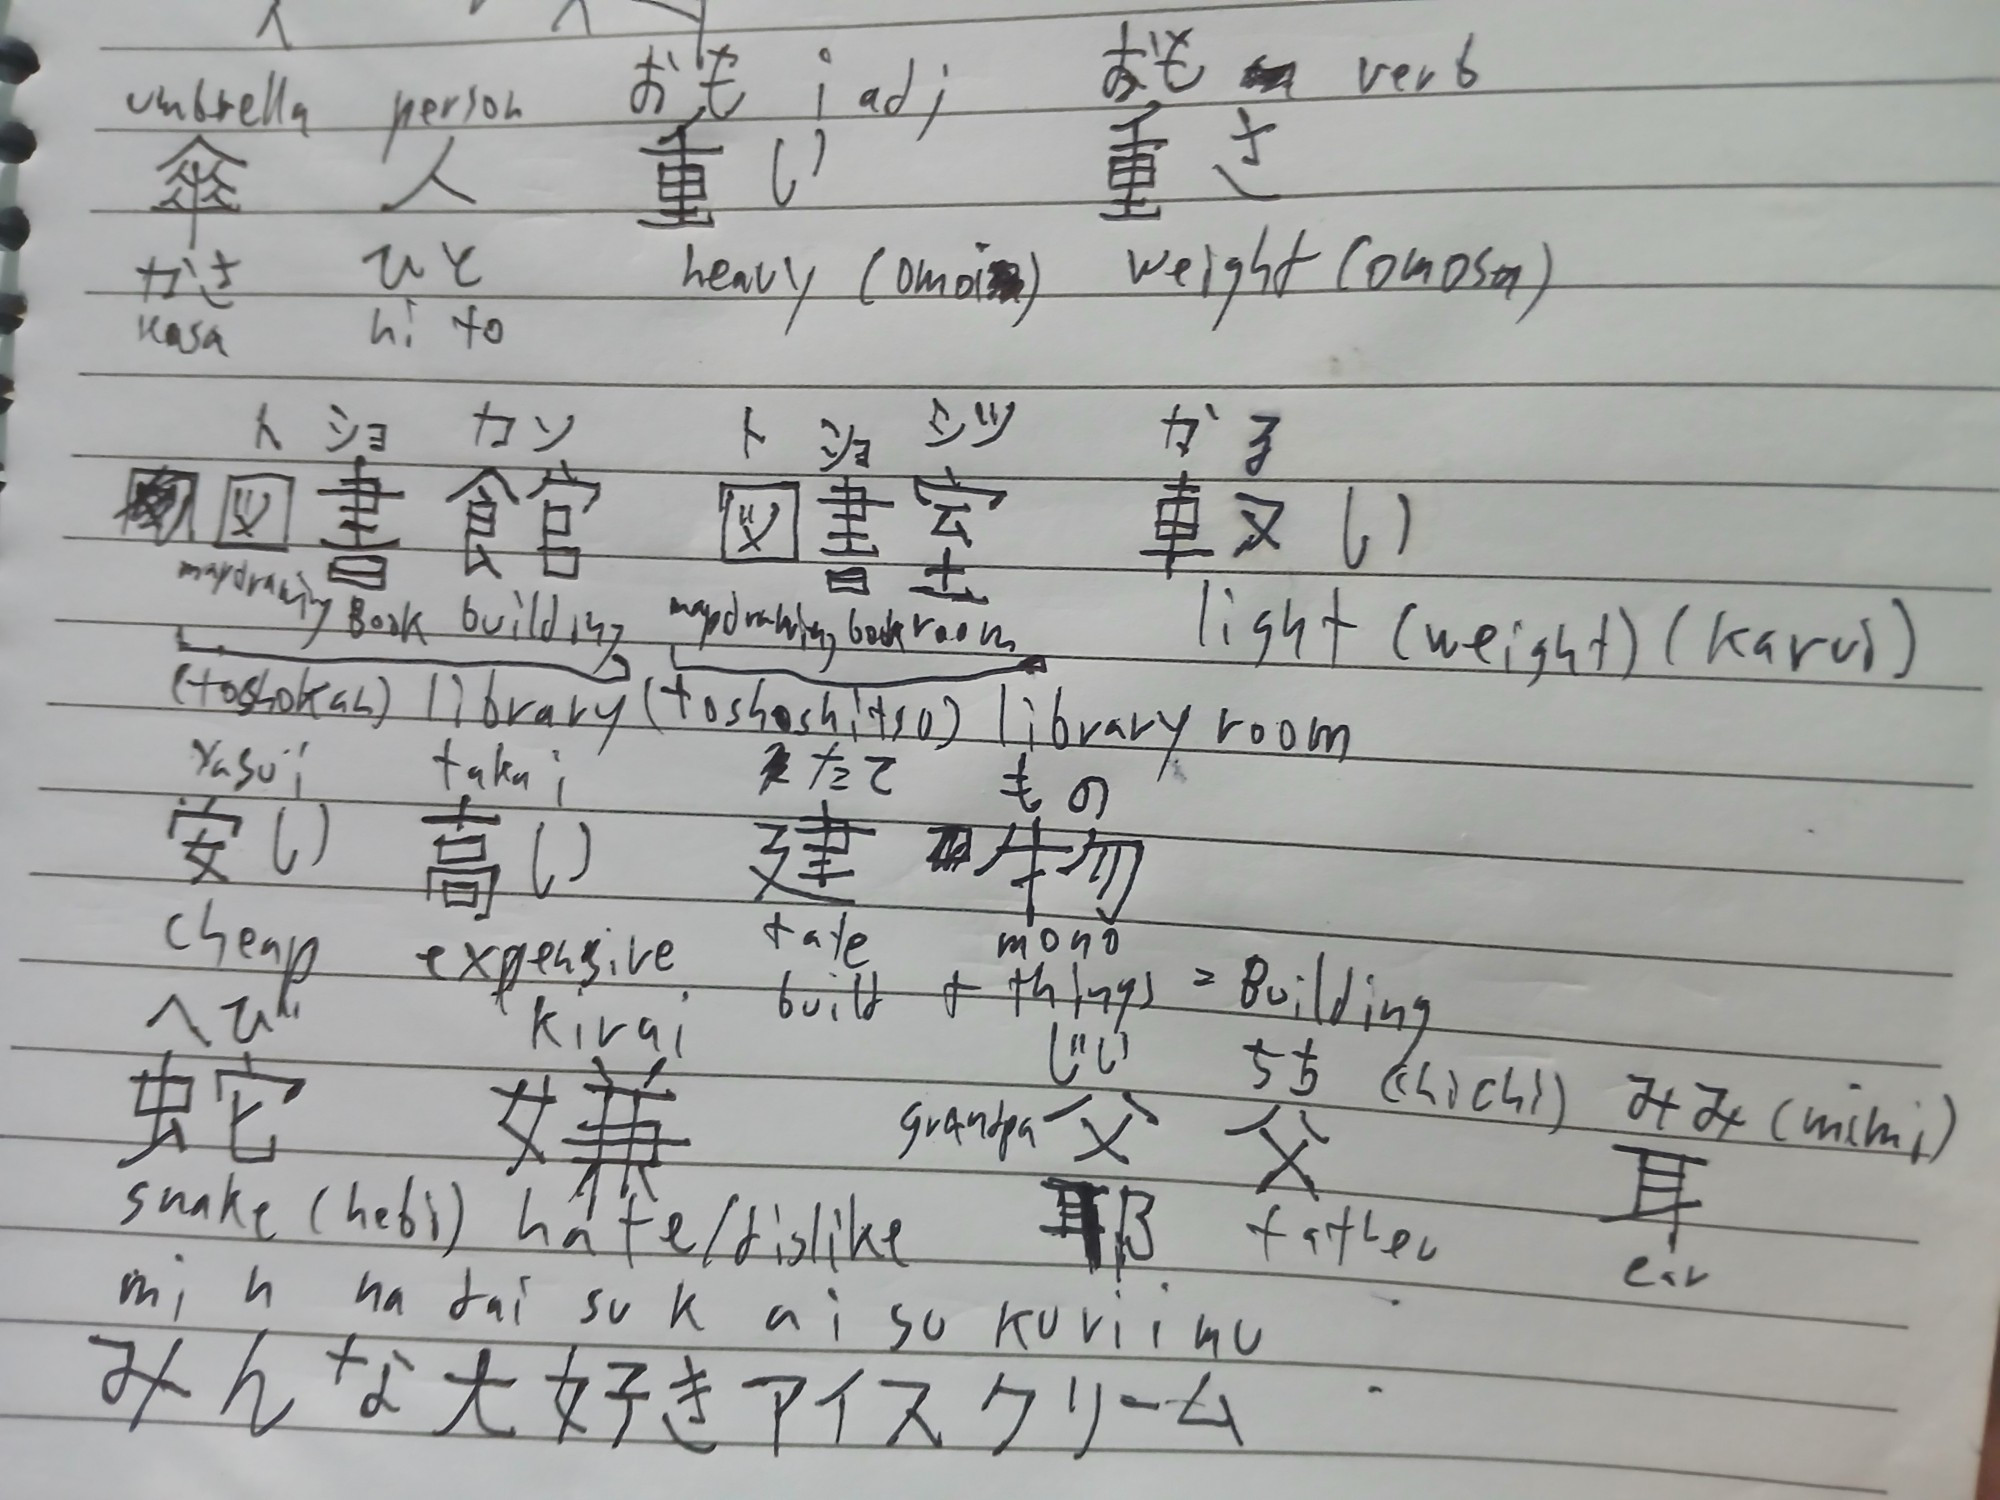 umbrella person おも i adj おも verb
傘 人 重い 重さ
かさ ひと heavy (omoi) weight (omosa)
kasa hi to
ト ショ カン ト ショ シツ かる
図書館 図書室 軽い
mapdrawing Book building mapdrawing book room light (weight) (karui)
(toshokan) library (toshoshitsu) library room
yasui takai たて もの
安い 高い 建物
cheap expensive tate mono
build + things = Building
へび kirai じい ちち (chichi) みみ (mimi)
蛇 嫌 grandpa 爺 父 耳
snake (hebi) hate/dislike father ear
mi n na dai su k ai su kuriimu
みんな大好きアイスクリーム